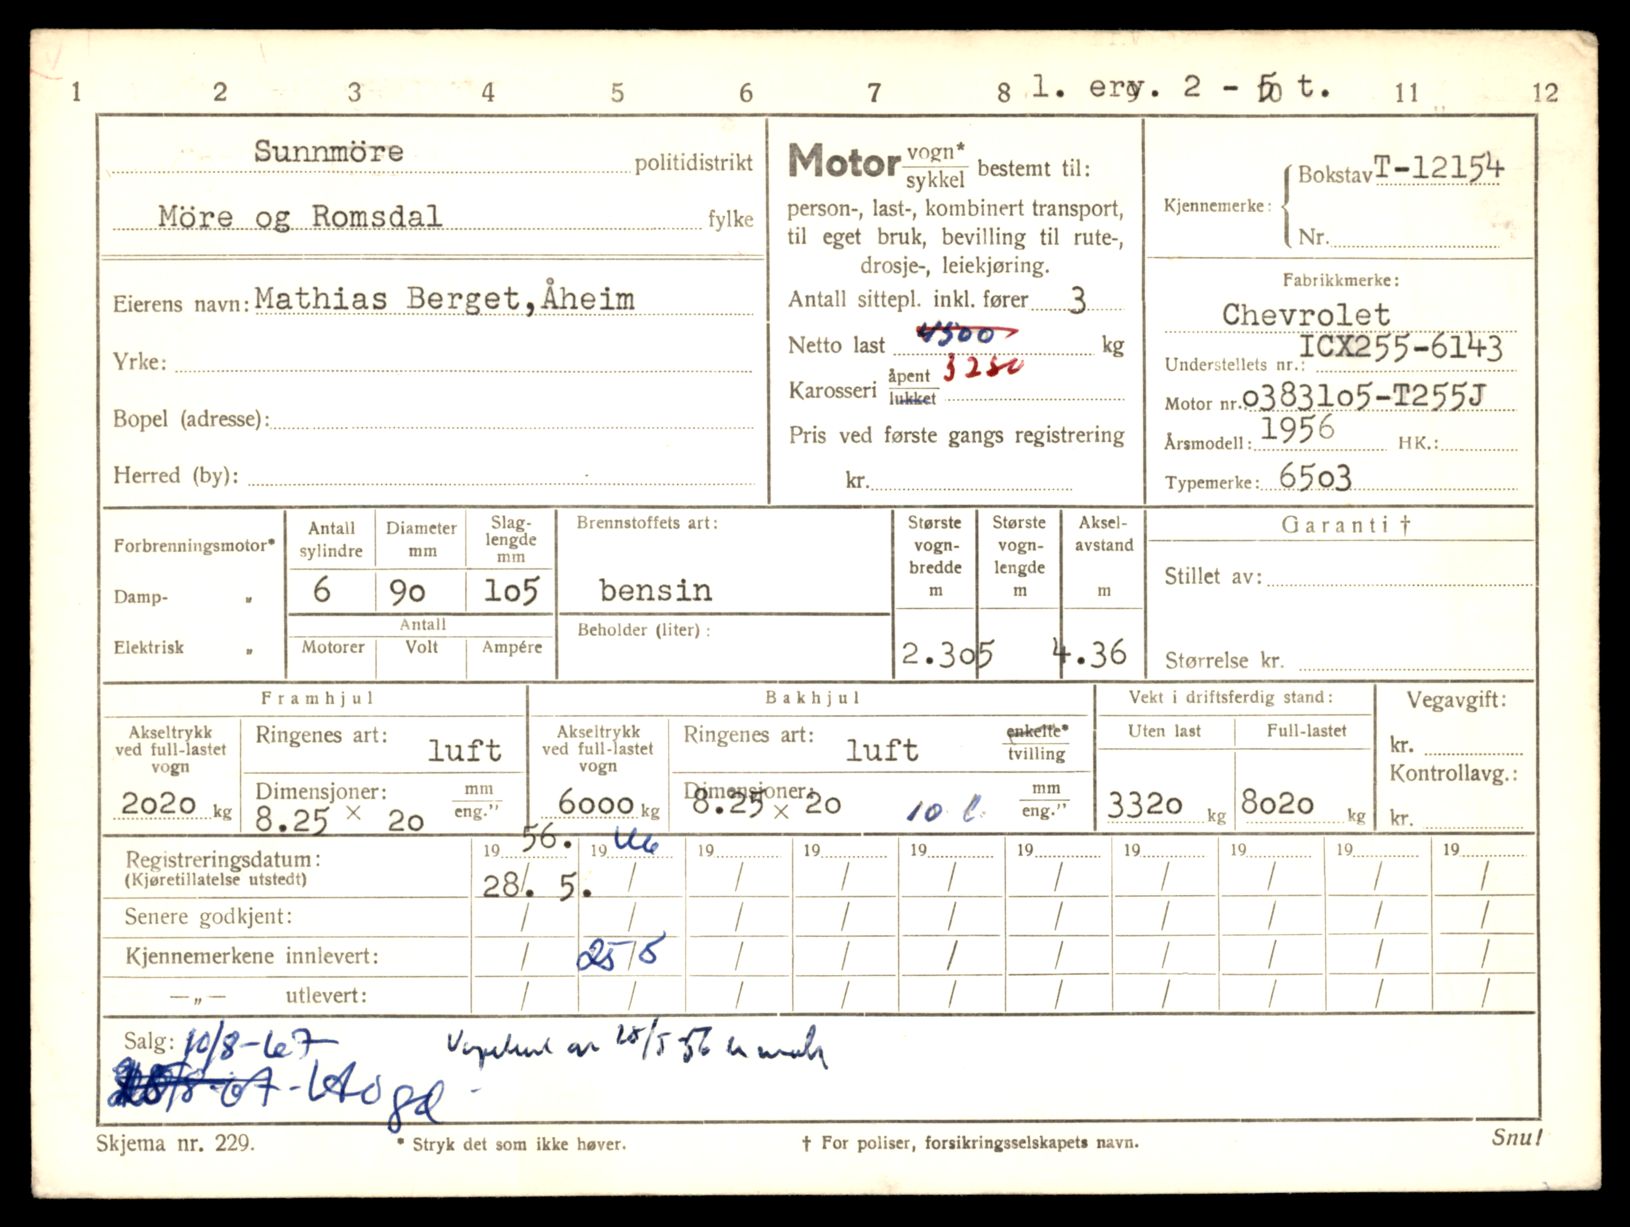 1 2 3 4 5 6 7 8 9 10 11 12
l. erv. 2 - 5 t.
Sunnmöre politidistrikt
Möre og Romsdal fylke
Eierens navn: Mathias Berget, Åheim
Yrke:
Bopel (adresse):
Herred (by):
Motor vogn* sykkel bestemt til:
person-, last-, kombinert transport,
til eget bruk, bevilling til rute-,
drosje-, leiekjøring.
Antall sittepl. inkl. fører 3
Netto last 4500 kg
3250
Karosseri åpent lukket
Pris ved første gangs registrering
kr.
Kjennemerke: Bokstav T-12154
Nr.
Fabrikkmerke:
Chevrolet
Understellets nr.: ICX255-6143
Motor nr. o3831o5-T255J
Årsmodell: 1956 HK.:
Typemerke: 65o3
Forbrenningsmotor*
Damp- „
Elektrisk „
Antall sylindre
6
Diameter mm
9o
Slag-lengde mm
1o5
Antall
Motorer Volt Ampére
Brennstoffets art:
bensin
Beholder (liter):
Største vogn-bredde m
2.3o5
Største vogn-lengde m
Aksel-avstand m
4.36
Garanti †
Stillet av:
Størrelse kr.
Framhjul
Akseltrykk ved full-lastet vogn
2o2o kg
Ringenes art: luft
Dimensjoner: mm eng.”
8.25 × 2o
Bakhjul
Akseltrykk ved full-lastet vogn
6ooo kg
Ringenes art: luft enkelte* tvilling
Dimensjoner: mm eng.”
8.25 × 2o 10 l.
Vekt i driftsferdig stand:
Uten last Full-lastet
332o kg 8o2o kg
Vegavgift:
kr.
Kontrollavg.:
kr.
19 56. 19 66 19 19 19 19 19 19 19 19
Registreringsdatum:
(Kjøretillatelse utstedt)
28/. 5. / / / / / / / / /
Senere godkjent: / / / / / / / / / /
Kjennemerkene innlevert: / 25/5 / / / / / / / /
— „ — utlevert: / / / / / / / / / /
Salg: 10/8-67
28/5-56
Skjema nr. 229.
* Stryk det som ikke høver.
† For poliser, forsikringsselskapets navn.
Snu!